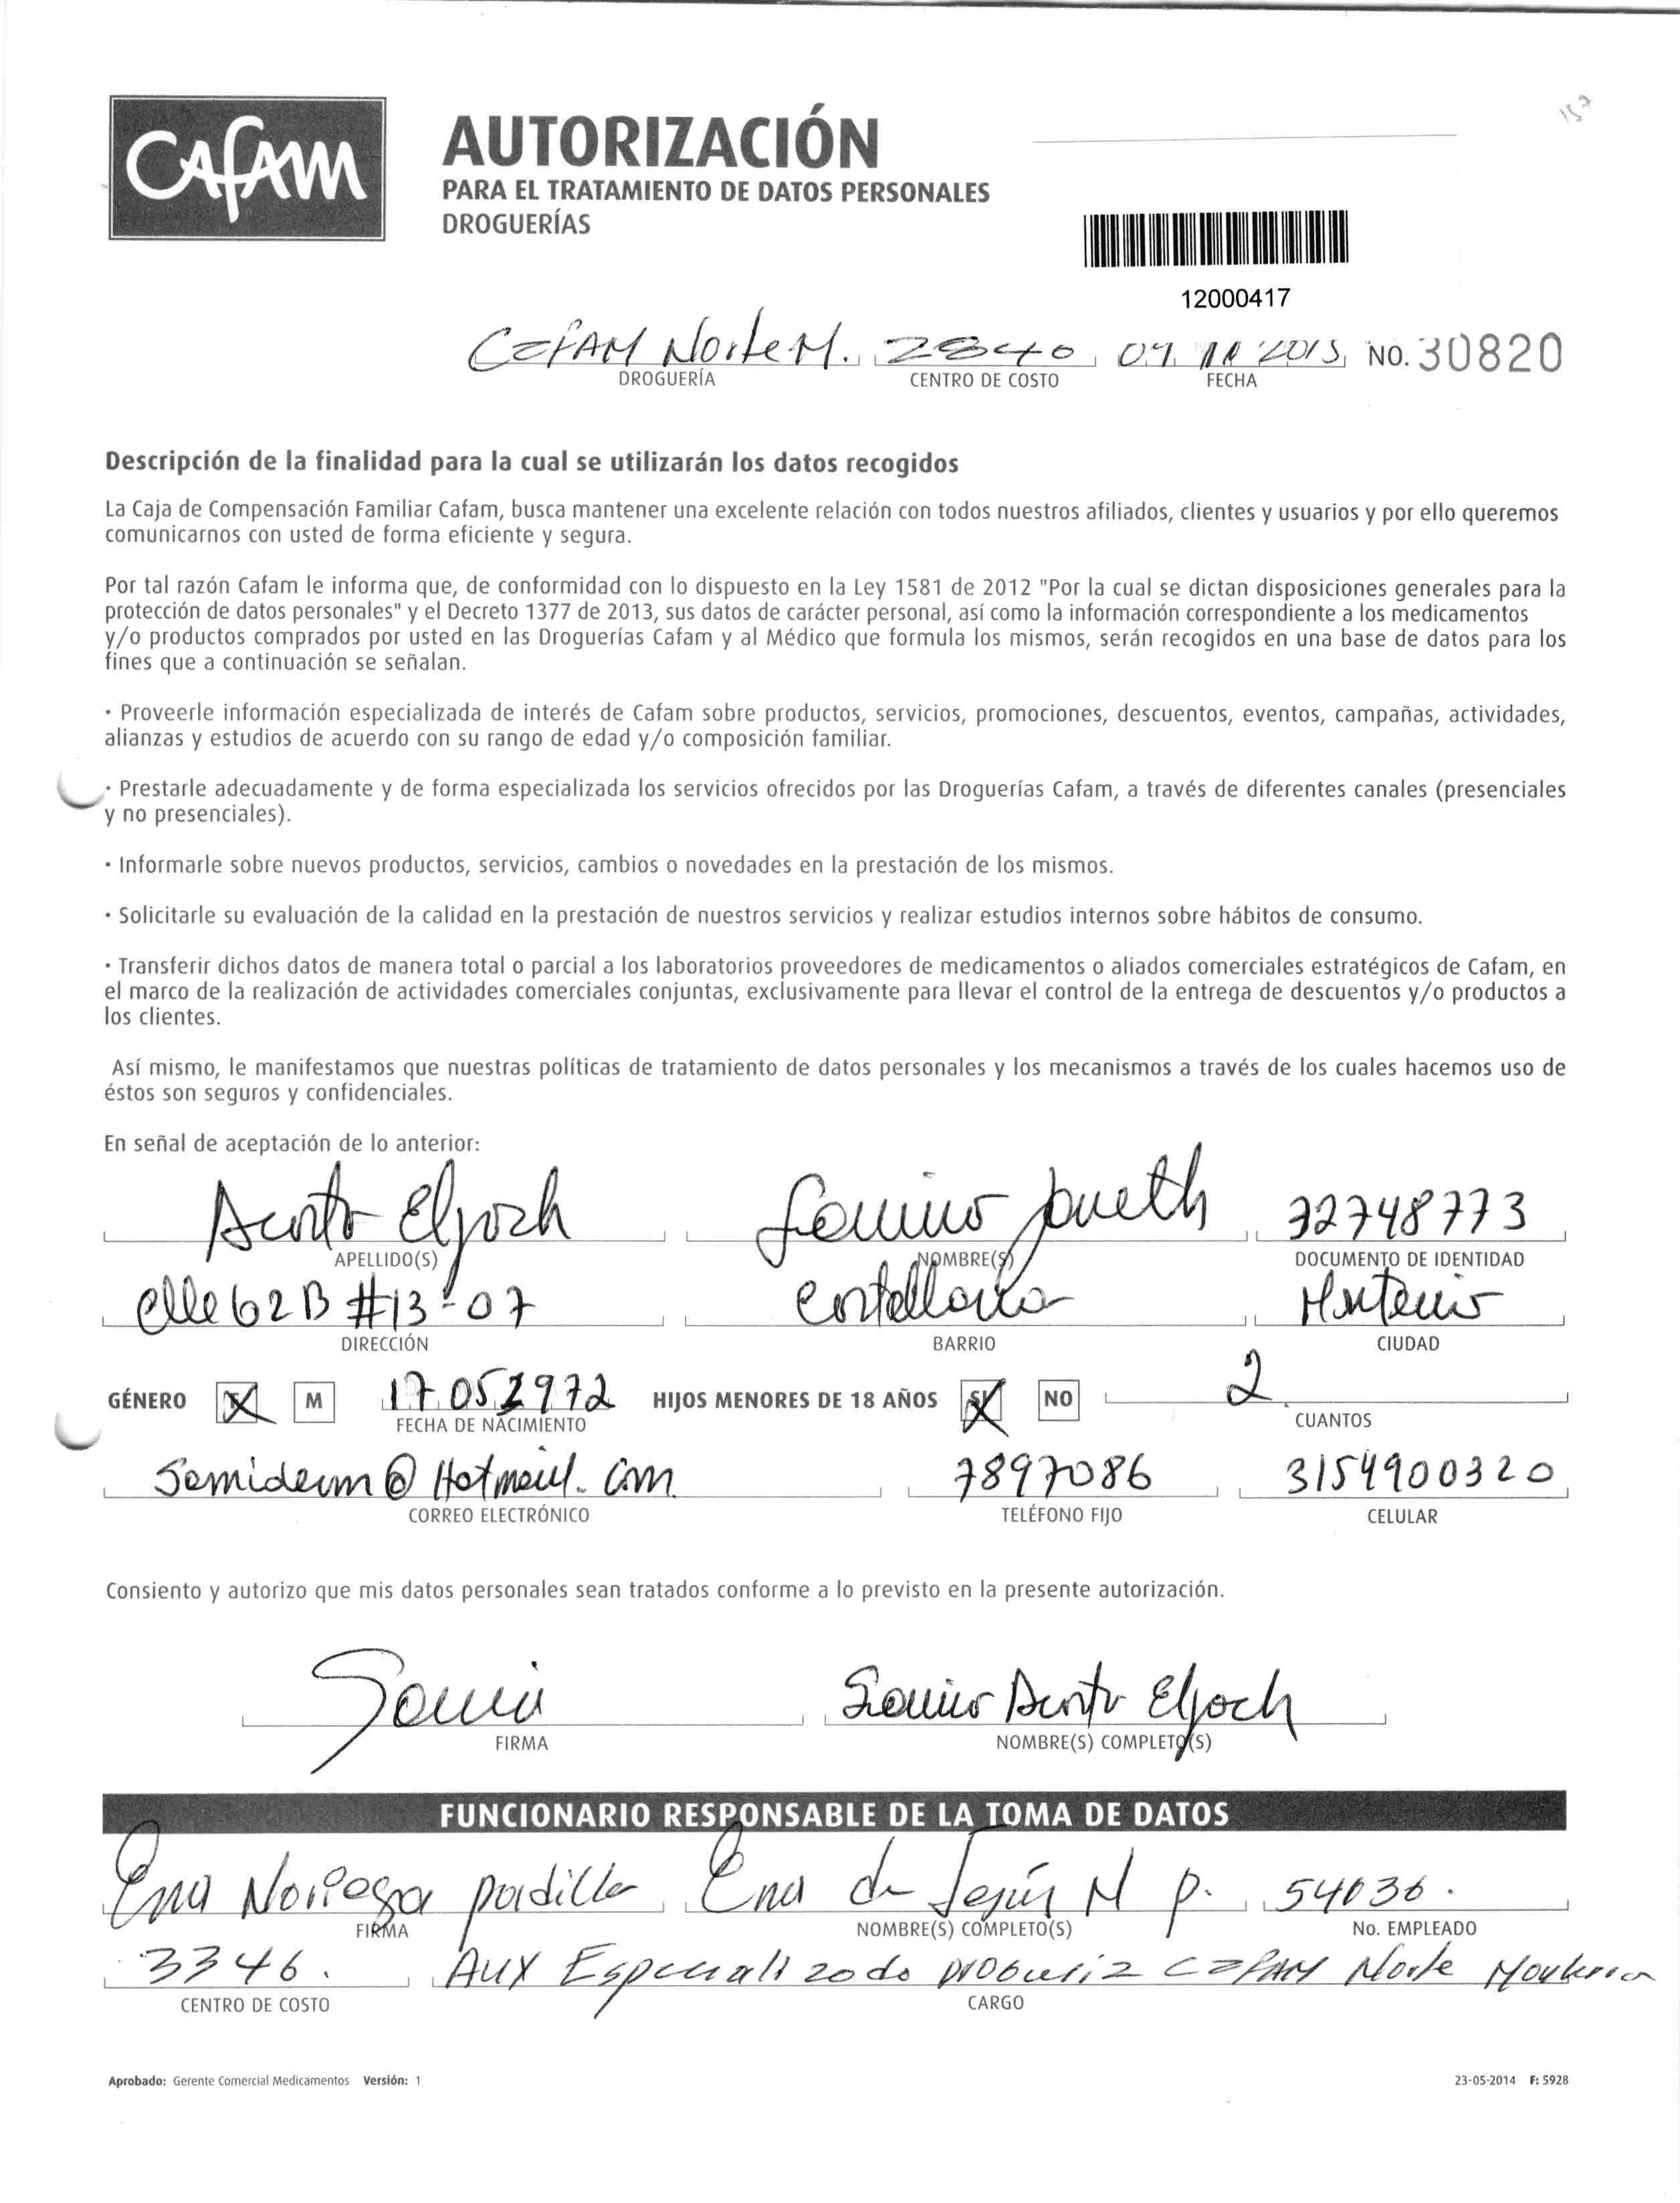 CAFAM
AUTORIZACIÓN
PARA EL TRATAMIENTO DE DATOS PERSONALES
DROGUERÍAS
157
12000417
CAFAM Norte M. 2334 0 09 11 2015 NO. 30820
DROGUERÍA CENTRO DE COSTO FECHA
Descripción de la finalidad para la cual se utilizarán los datos recogidos
La Caja de Compensación Familiar Cafam, busca mantener una excelente relación con todos nuestros afiliados, clientes y usuarios y por ello queremos
comunicarnos con usted de forma eficiente y segura.
Por tal razón Cafam le informa que, de conformidad con lo dispuesto en la Ley 1581 de 2012 "Por la cual se dictan disposiciones generales para la
protección de datos personales" y el Decreto 1377 de 2013, sus datos de carácter personal, así como la información correspondiente a los medicamentos
y/o productos comprados por usted en las Droguerías Cafam y al Médico que formula los mismos, serán recogidos en una base de datos para los
fines que a continuación se señalan.
· Proveerle información especializada de interés de Cafam sobre productos, servicios, promociones, descuentos, eventos, campañas, actividades,
alianzas y estudios de acuerdo con su rango de edad y/o composición familiar.
· Prestarle adecuadamente y de forma especializada los servicios ofrecidos por las Droguerías Cafam, a través de diferentes canales (presenciales
y no presenciales).
· Informarle sobre nuevos productos, servicios, cambios o novedades en la prestación de los mismos.
· Solicitarle su evaluación de la calidad en la prestación de nuestros servicios y realizar estudios internos sobre hábitos de consumo.
· Transferir dichos datos de manera total o parcial a los laboratorios proveedores de medicamentos o aliados comerciales estratégicos de Cafam, en
el marco de la realización de actividades comerciales conjuntas, exclusivamente para llevar el control de la entrega de descuentos y/o productos a
los clientes.
Así mismo, le manifestamos que nuestras políticas de tratamiento de datos personales y los mecanismos a través de los cuales hacemos uso de
éstos son seguros y confidenciales.
En señal de aceptación de lo anterior:
Acosta Eljach 32748773
APELLIDO(S) NOMBRE(S) DOCUMENTO DE IDENTIDAD
Clle 62B #13-07 Castellana Monteria
DIRECCIÓN BARRIO CIUDAD
GÉNERO F M 17 05 1972 HIJOS MENORES DE 18 AÑOS SI NO 2
FECHA DE NACIMIENTO CUANTOS
@ Hotmail. Com 7897086 3154900320
CORREO ELECTRÓNICO TELÉFONO FIJO CELULAR
Consiento y autorizo que mis datos personales sean tratados conforme a lo previsto en la presente autorización.
Acosta Eljach
FIRMA NOMBRE(S) COMPLETO(S)
FUNCIONARIO RESPONSABLE DE LA TOMA DE DATOS
Ena Noriega padilla Ena de Jesús N p. 54036.
FIRMA NOMBRE(S) COMPLETO(S) No. EMPLEADO
3346. AUX Especializado Drogueria CAFAM Norte Monteria
CENTRO DE COSTO CARGO
Aprobado: Gerente Comercial Medicamentos Versión: 1 23-05-2014 F: 5928